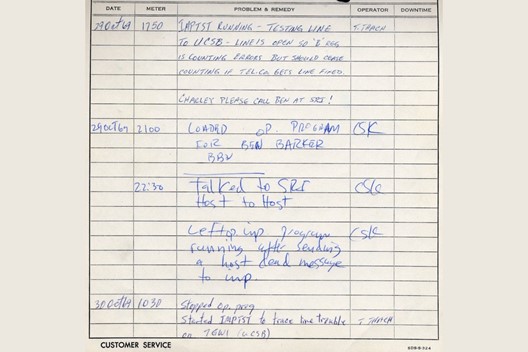 DATE METER PROBLEM & REMEDY OPERATOR DOWNTIME
29 OCT 69 1750 IMPTST RUNNING - TESTING LINE T. THACH
TO UCSB - LINE IS OPEN SO 'E' REG
IS COUNTING ERRORS BUT SHOULD CEASE
COUNTING IF TELCO. GETS LINE FIXED.
CHARLEY PLEASE CALL BEN AT SRI!
29 OCT 69 2100 LOADED OP. PROGRAM CSK
FOR BEN BARKER
BBN
22:30 Talked to SRI CSK
Host to Host
Left op. imp program CSK
running after sending
a host dead message
to imp.
30 OCT 69 1030 Stopped op. prog
Started IMPTST to trace line trouble T. THACH
on (UCSB)
CUSTOMER SERVICE